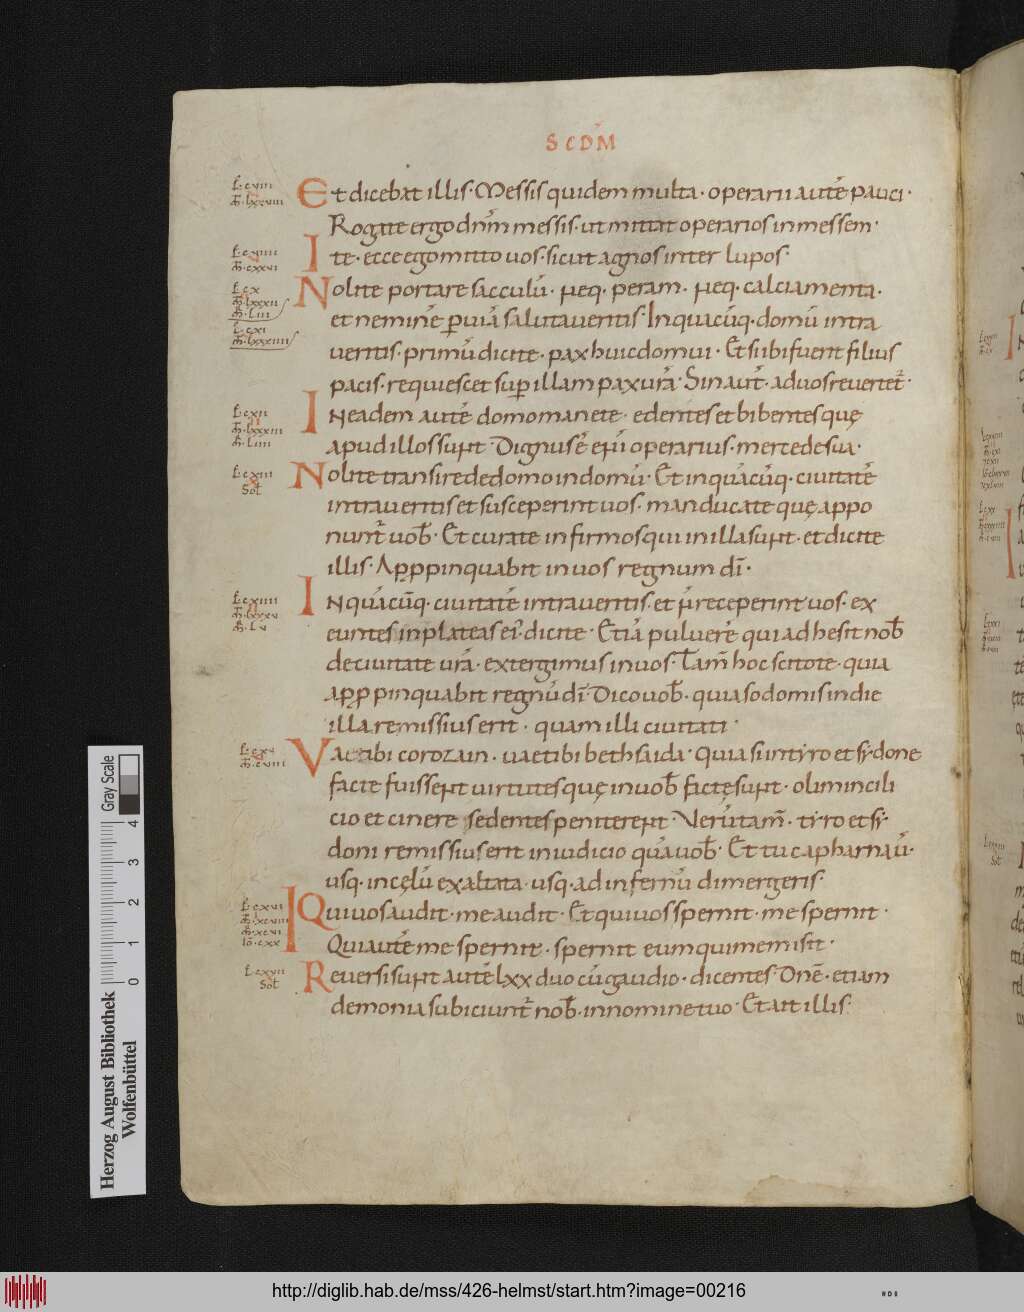 SCDM̅
Et dicebat illis· Messis quidem multa· operarii aute̅ pauci·
Rogate ergo dn̅m messis· ut mittat operarios in messem·
Ite· ecce ego mitto vos· sicut agnos inter lupos·
Nolite portare sacculu̅· neq· peram· neq· calciamenta·
et nemine̅ p̲ via̅ salutaveritis· In quacu̅q· domu̅ intra
veritis· primu̅ dicite· pax huic domui· Et si ibi fuerit filius
pacis· requiescet sup̲ illam pax vr̅a· Sin aut̅· ad vos revertet᷑·
In eadem aute̅ domo manete· edentes et bibentes quę
apud illos sunt· Dignus e̅ eni̅ operarius· mercede sua·
Nolite transire de domo in domu̅· Et in qua̅cu̅q· civitate̅
intraveritis et susceperint vos· manducate quę appo
nunt᷑ vob̅· Et curate infirmos qui in illa sunt· et dicite
illis· App̲ropinquabit in vos regnum di̅·
In qua̅cu̅q· civitate̅ intraveritis· et n̅ receperint vos· ex
euntes in plateas ei᷒· dicite· Etia̅ pulvere̅ qui adhesit nob̅
de civitate vr̅a· extergimus in vos· Tam̅ hoc scitote· quia
app̲ropinquabit regnu̅ di̅· Dico vob̅· quia sodomis in die
illa remissius erit· quam illi civitati·
Vae tibi corozain· vae tibi bethsaida· Quia si in tyro et sydone
facte fuissent virtutes quę in vob̅ factę sunt· olim in cili
cio et cinere sedentes peniterent· Veru̅tam̅· tyro et sy
doni remissius erit in iudicio qua̅ vob̅· Et tu capharnau̅·
usq· in cęlu̅ exaltata· usq· ad infernu̅ dimergeris·
Qui vos audit· me audit· Et qui vos spernit· me spernit·
Qui aute̅ me spernit· spernit eum qui me misit·
Reversi sunt aute̅ lxx duo cu̅ gaudio· dicentes· Dn̅e· etiam
demonia subiciunt᷑ nob̅· in nomine tuo· Et ait illis·
Herzog August Bibliothek
Wolfenbüttel
Gray Scale
0 1 2 3 4
http://diglib.hab.de/mss/426-helmst/start.htm?image=00216